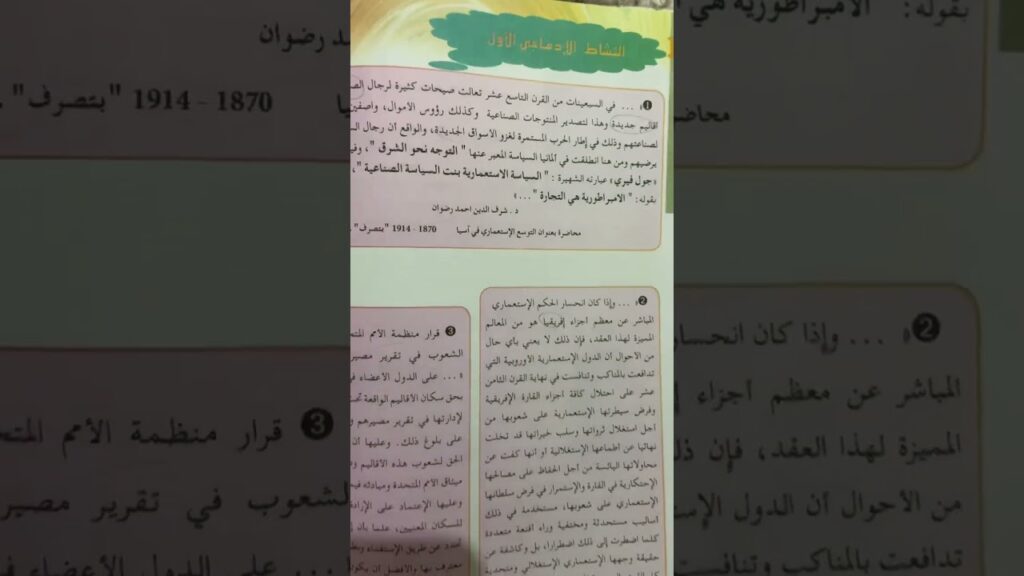 النشاط الإدماجي الأول
❶ « ... في السبعينات من القرن التاسع عشر تعالت صيحات كثيرة لرجال
أقاليم جديدة وهذا لتصدير المنتوجات الصناعية وكذلك رؤوس الاموال، واصفين
لصناعتهم وذلك في إطار الحرب المستمرة لغزو الاسواق الجديدة، والواقع أن رجال
برضيهم ومن هنا انطلقت في ألمانيا السياسة المعبر عنها " التوجه نحو الشرق "،
«جول فيري» عبارته الشهيرة : " السياسة الاستعمارية بنت السياسة الصناعية "،
بقوله: " الامبراطورية هي التجارة " ... »
د. شرف الدين احمد رضوان
محاضرة بعنوان التوسع الإستعماري في آسيا 1870 - 1914 "بتصرف" .
❷ « ... وإذا كان انحسار الحكم الإستعماري
المباشر عن معظم أجزاء إفريقيا هو من المعالم
المميزة لهذا العقد، فإن ذلك لا يعني بأي حال
من الأحوال أن الدول الإستعمارية الأوروبية التي
تدافعت بالمناكب وتنافست في نهاية القرن الثامن
عشر على احتلال كافة أجزاء القارة الإفريقية
وفرض سيطرتها الإستعمارية على شعوبها من
أجل استغلال ثرواتها وسلب خيراتها قد تخلت
نهائيا عن اطماعها الإستغلالية أو أنها كفت عن
محاولاتها اليائسة من أجل الحفاظ على مصالحها
الإحتكارية في القارة والإستمرار في فرض سلطانها
الإستعماري على شعوبها، مستخدمة في ذلك
أساليب مستحدثة ومختفية وراء أقنعة متعددة
كلما اضطرت إلى ذلك اضطرارا، بل وكاشفة عن
حقيقة وجهها الإستعماري الإستغلالي ومتحدية
❸ قرار منظمة الأمم
الشعوب في تقرير مصير
« ... على الدول الأعضاء في
بحق سكان الأقاليم الواقعة
لإدارتها في تقرير مصيرهم
على بلوغ ذلك. وعليها أن
الحق لشعوب هذه الأقاليم
ميثاق الأمم المتحدة ومبادئه
وعليها الإعتماد على الإرادة
للسكان المعنيين، علما بأن
تحدد عن طريق الإستفتاء
معترف بها والأفضل أن يكون